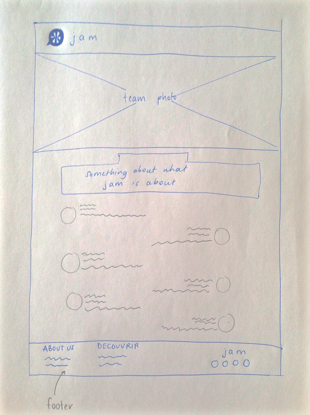 jam
team photo
Something about what
jam is about
ABOUT US
DECOUVRIR
jam
footer